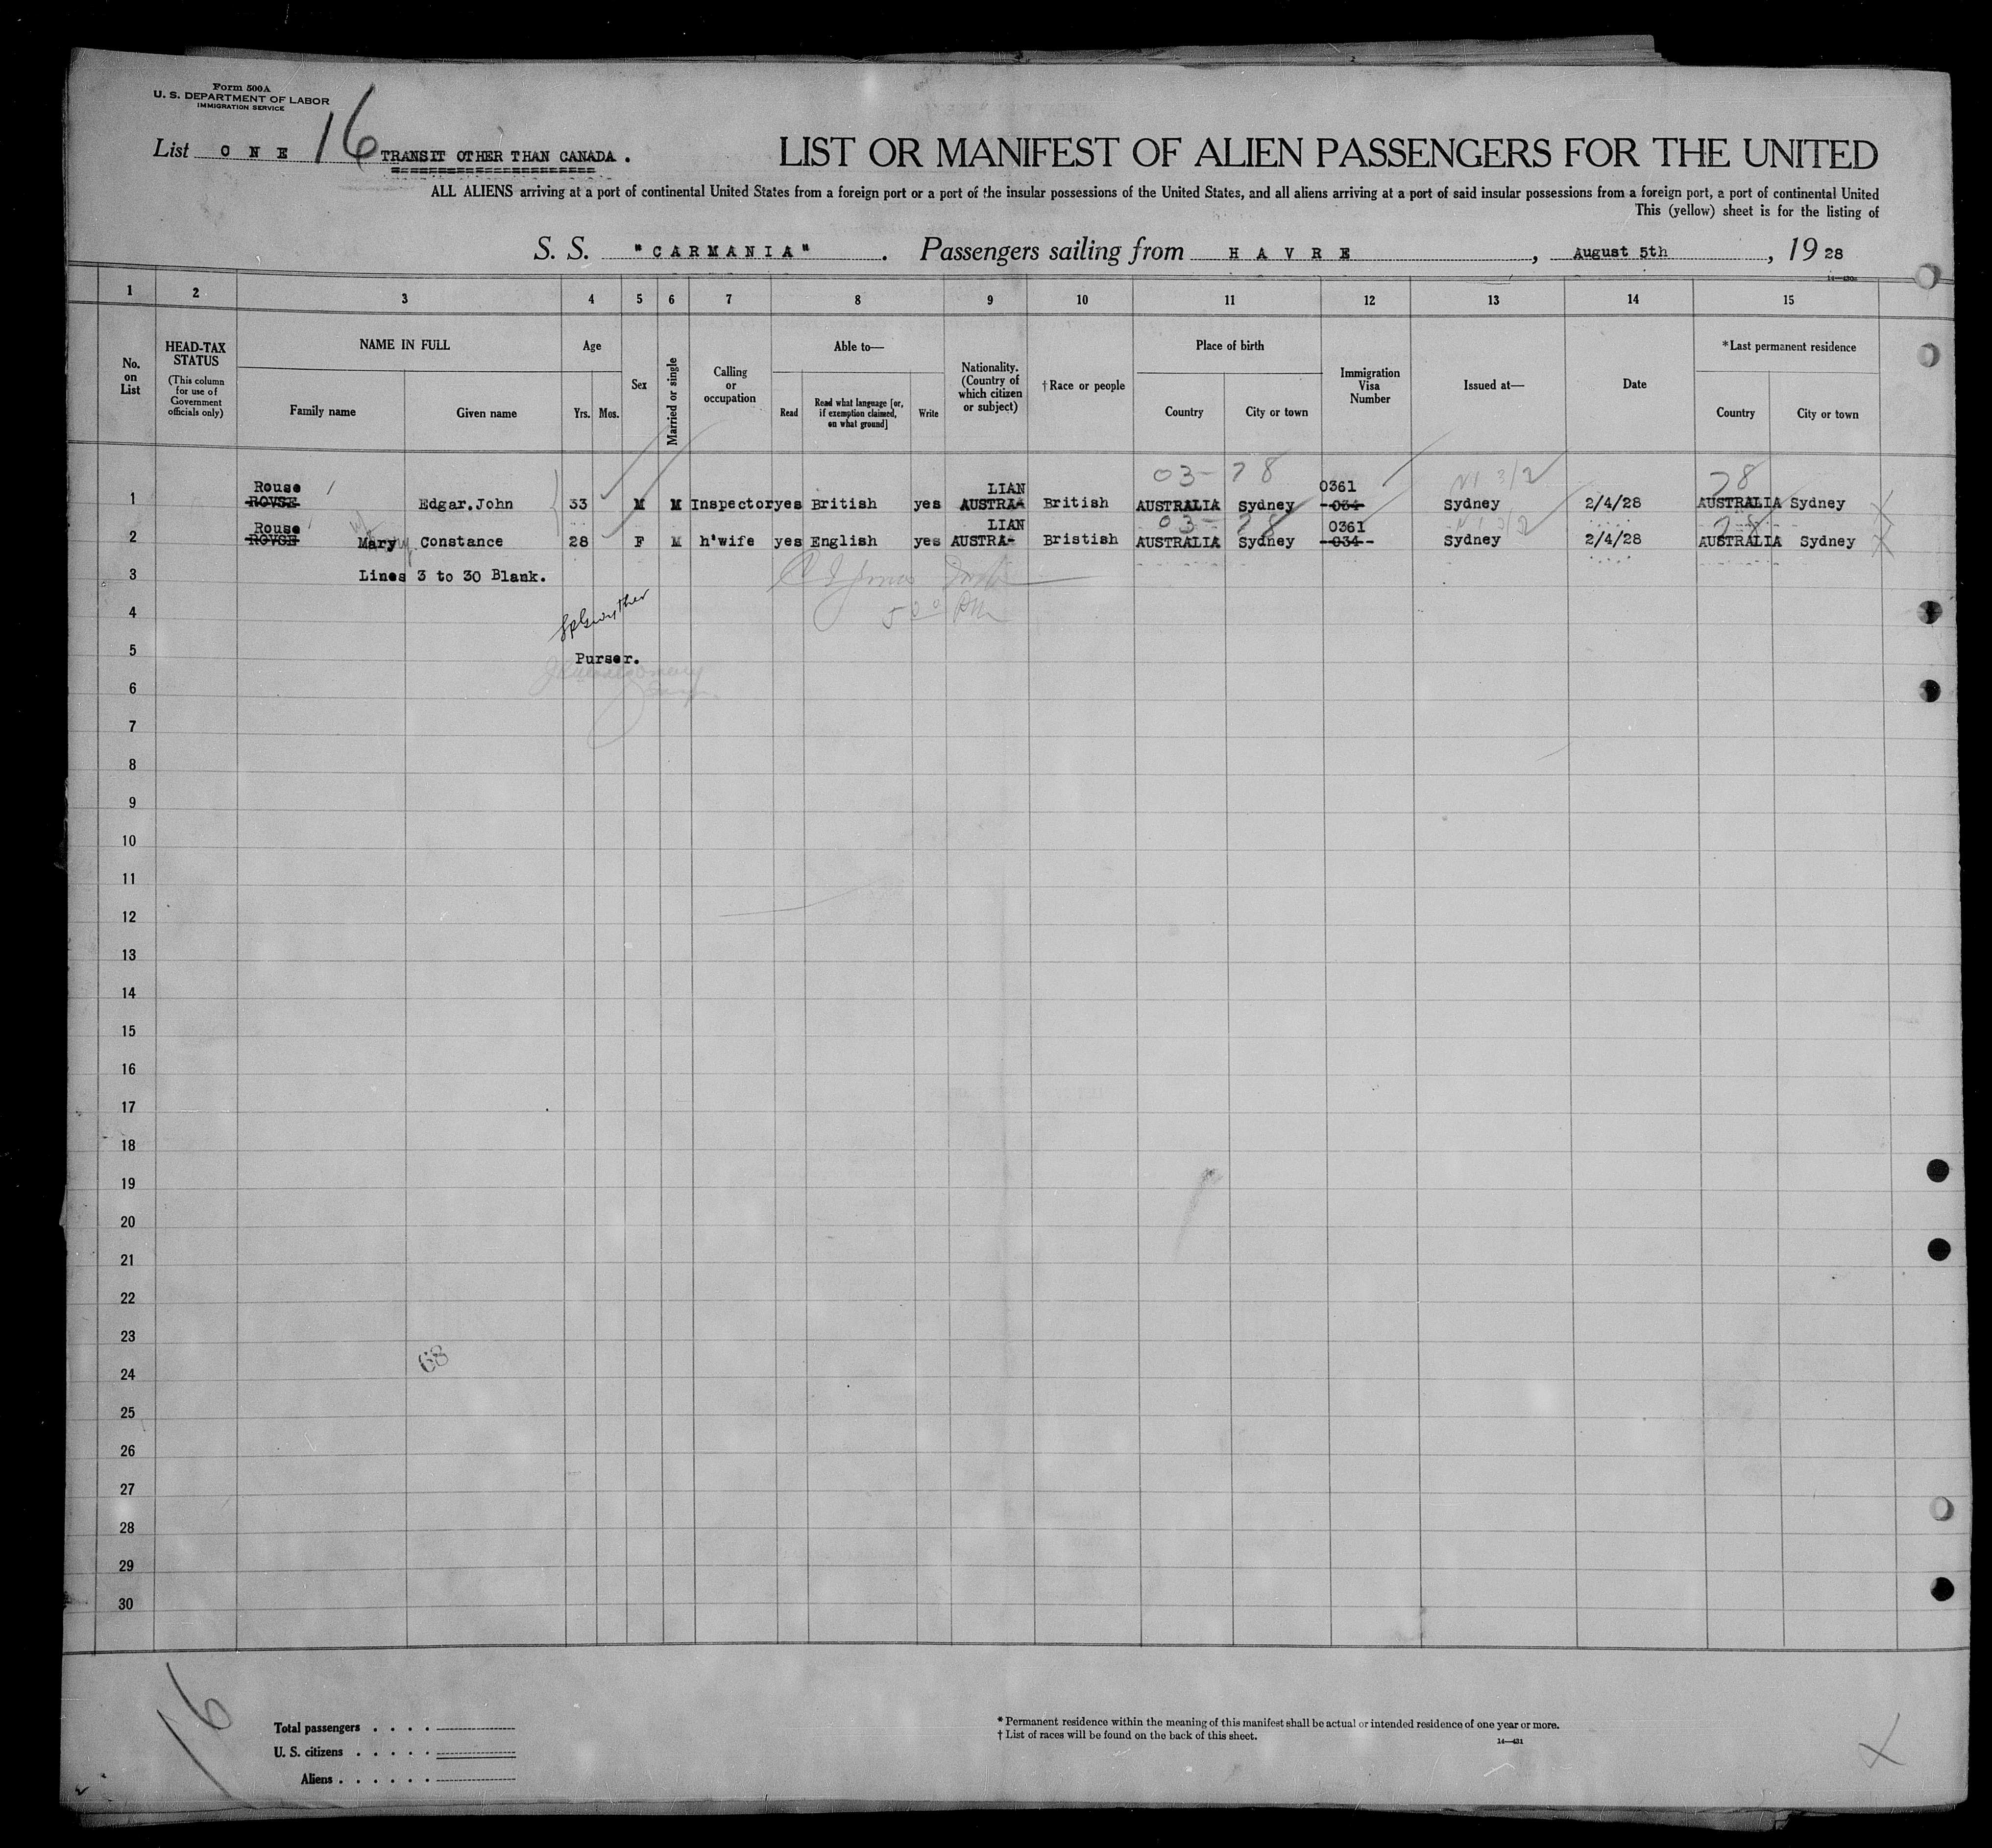 Form 500A
U. S. DEPARTMENT OF LABOR
IMMIGRATION SERVICE
List ONE 16 TRANSIT OTHER THAN CANADA.
LIST OR MANIFEST OF ALIEN PASSENGERS FOR THE UNITED
ALL ALIENS arriving at a port of continental United States from a foreign port or a port of the insular possessions of the United States, and all aliens arriving at a port of said insular possessions from a foreign port, a port of continental United
This (yellow) sheet is for the listing of
S. S. "CARMANIA". Passengers sailing from HAVRE, August 5th, 1928
14-430
1 2 3 4 5 6 7 8 9 10 11 12 13 14 15
No. on List
HEAD-TAX STATUS
(This column for use of Government officials only)
NAME IN FULL
Family name
Given name
Age
Yrs. Mos.
Sex
Married or single
Calling or occupation
Able to—
Read
Read what language [or, if exemption claimed, on what ground]
Write
Nationality. (Country of which citizen or subject)
†Race or people
Place of birth
Country
City or town
Immigration Visa Number
Issued at—
Date
*Last permanent residence
Country
City or town
03- 78 NI 3/2 78
Rouse LIAN 0361
1 ROVSE Edgar.John 33 M M Inspector yes British yes AUSTRA- British AUSTRALIA Sydney -034- Sydney 2/4/28 AUSTRALIA Sydney
Rouse LIAN 03- 78 0361 NI 3/2 78
2 ROVSE Mary Constance 28 F M h'wife yes English yes AUSTRA- Bristish AUSTRALIA Sydney -034- Sydney 2/4/28 AUSTRALIA Sydney
3 Lines 3 to 30 Blank.
4
5 00 PM
5 Purser.
6
7
8
9
10
11
12
13
14
15
16
17
18
19
20
21
22
23
68
24
25
26
27
28
29
30
16
Total passengers
U. S. citizens
Aliens
* Permanent residence within the meaning of this manifest shall be actual or intended residence of one year or more.
† List of races will be found on the back of this sheet.
14-431
X